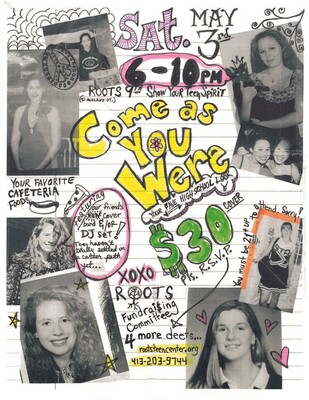 SAT. MAY 3rd
6-10PM
ROOTS 9th Show Your Teen Spirit
Come as
YOU
Were
YOUR FAVE HIGH SCHOOL LOOK
YOUR FAVORITE
CAFETERIA
FOODS
FEATURING
your friend's
cover
band &/or
DJ set!
They haven't
totally settled on
a career path
yet...
$30
COVER
Pls. R.S.V.P.
You must be 21+ to attend. Sorry!
XOXO
ROOTS
Fundraising
Committee
4 more deets...
rootsteencenter.org
413-203-9744